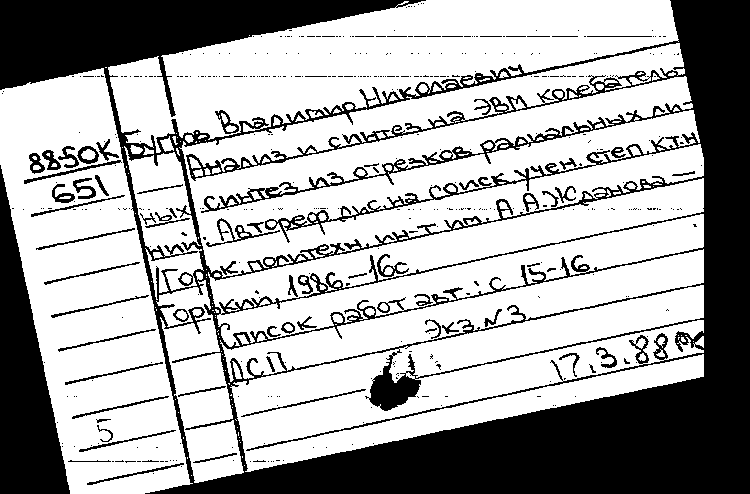 88-50К
651
Бугров, Владимир Николаевич
Анализ и синтез на ЭВМ колебатель-
ных синтез из отрезков радиальных ли-
ний: Автореф дис. на соиск учен. степ. к.т.н
/Горьк. политехн. ин-т им. А.А.Жданова —
Горький, 1986.-16с.
Список работ авт.: с 15-16.
ДСП. Экз.N3
17.3.88
5